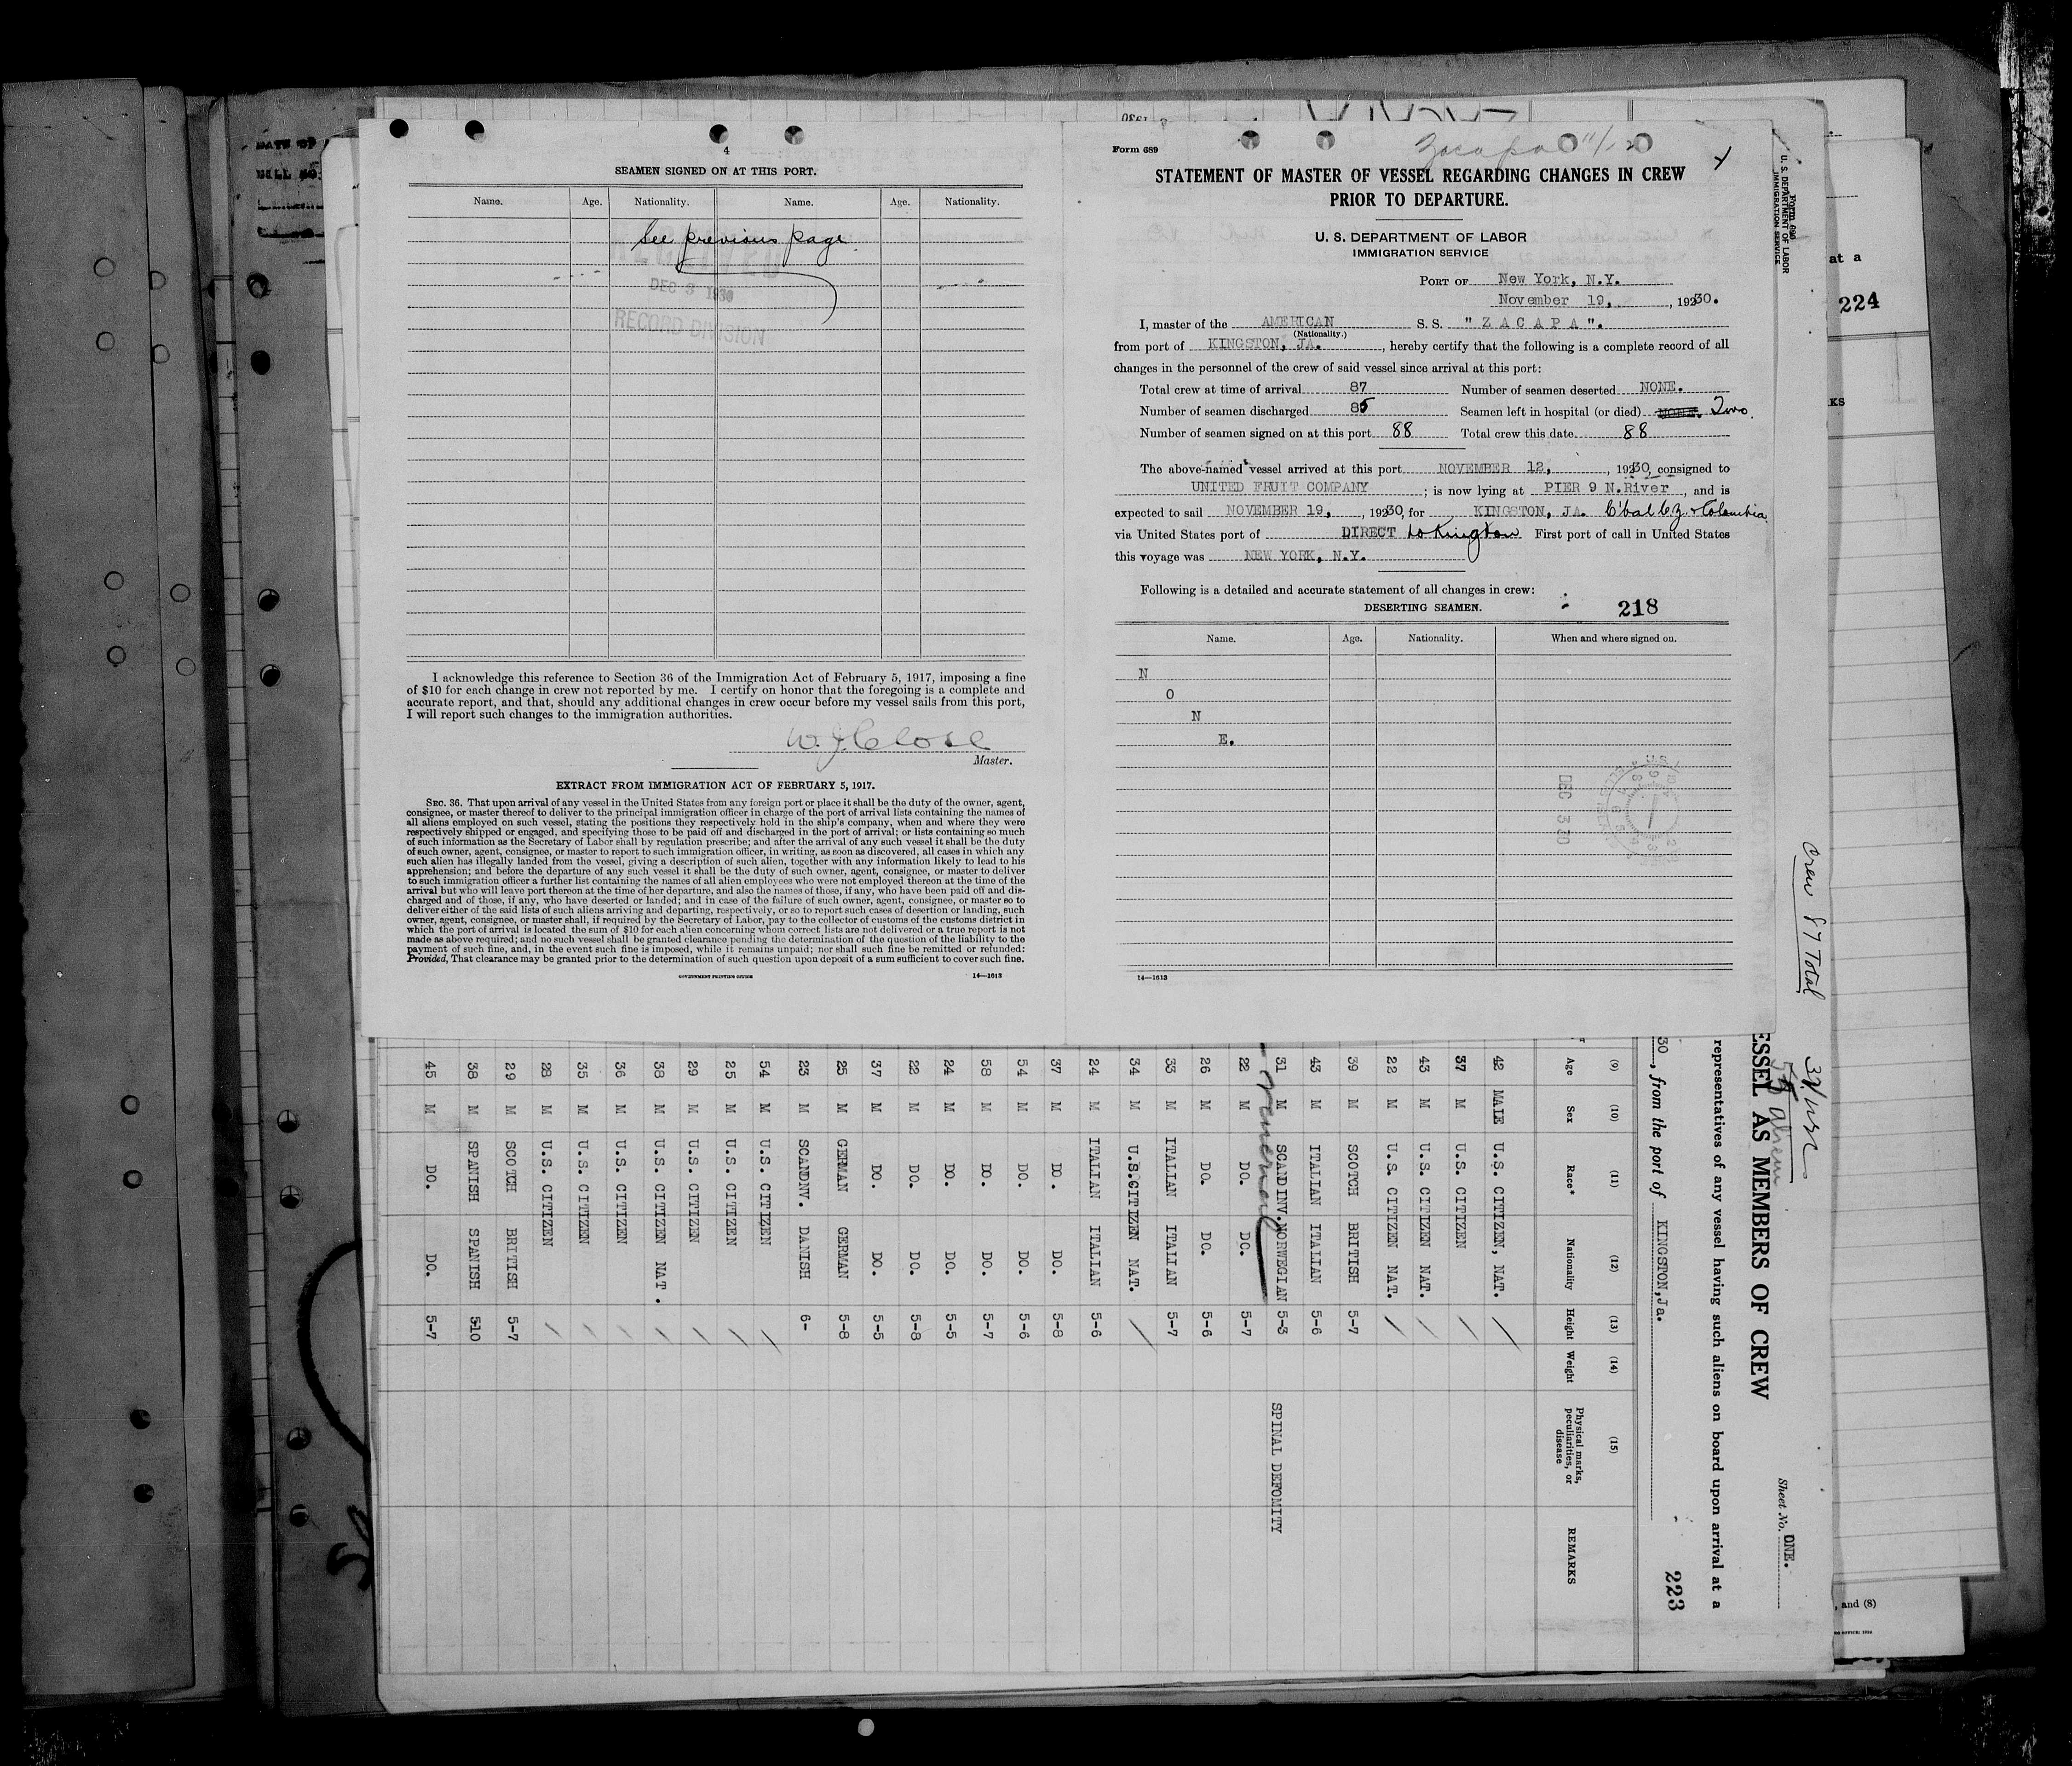 4
SEAMEN SIGNED ON AT THIS PORT.
Name. Age. Nationality. Name. Age. Nationality.
See previous page
DEC 3 1930
RECORD DIVISION
I acknowledge this reference to Section 36 of the Immigration Act of February 5, 1917, imposing a fine
of $10 for each change in crew not reported by me. I certify on honor that the foregoing is a complete and
accurate report, and that, should any additional changes in crew occur before my vessel sails from this port,
I will report such changes to the immigration authorities.
W. J. Close
Master.
EXTRACT FROM IMMIGRATION ACT OF FEBRUARY 5, 1917.
SEC. 36. That upon arrival of any vessel in the United States from any foreign port or place it shall be the duty of the owner, agent,
consignee, or master thereof to deliver to the principal immigration officer in charge of the port of arrival lists containing the names of
all aliens employed on such vessel, stating the positions they respectively hold in the ship's company, when and where they were
respectively shipped or engaged, and specifying those to be paid off and discharged in the port of arrival; or lists containing so much
of such information as the Secretary of Labor shall by regulation prescribe; and after the arrival of any such vessel it shall be the duty
of such owner, agent, consignee, or master to report to such immigration officer, in writing, as soon as discovered, all cases in which any
such alien has illegally landed from the vessel, giving a description of such alien, together with any information likely to lead to his
apprehension; and before the departure of any such vessel it shall be the duty of such owner, agent, consignee, or master to deliver
to such immigration officer a further list containing the names of all alien employees who were not employed thereon at the time of the
arrival but who will leave port thereon at the time of her departure, and also the names of those, if any, who have been paid off and dis-
charged and of those, if any, who have deserted or landed; and in case of the failure of such owner, agent, consignee, or master so to
deliver either of the said lists of such aliens arriving and departing, respectively, or so to report such cases of desertion or landing, such
owner, agent, consignee, or master shall, if required by the Secretary of Labor, pay to the collector of customs of the customs district in
which the port of arrival is located the sum of $10 for each alien concerning whom correct lists are not delivered or a true report is not
made as above required; and no such vessel shall be granted clearance pending the determination of the question of the liability to the
payment of such fine, and, in the event such fine is imposed, while it remains unpaid; nor shall such fine be remitted or refunded:
Provided, That clearance may be granted prior to the determination of such question upon deposit of a sum sufficient to cover such fine.
GOVERNMENT PRINTING OFFICE 14—1613
Form 689
Zacapa 11/12
STATEMENT OF MASTER OF VESSEL REGARDING CHANGES IN CREW
PRIOR TO DEPARTURE.
U. S. DEPARTMENT OF LABOR
IMMIGRATION SERVICE
PORT OF New York, N.Y.
November 19, , 19230.
I, master of the AMERICAN S. S. " Z A C A P A ".
(Nationality.)
from port of KINGSTON, JA. , hereby certify that the following is a complete record of all
changes in the personnel of the crew of said vessel since arrival at this port:
Total crew at time of arrival 87 Number of seamen deserted NONE.
Number of seamen discharged 85 Seamen left in hospital (or died) Two.
Number of seamen signed on at this port 88 Total crew this date 88
The above-named vessel arrived at this port NOVEMBER 12, , 19230, consigned to
UNITED FRUIT COMPANY ; is now lying at PIER 9 N.River , and is
expected to sail NOVEMBER 19, , 19230, for KINGSTON, JA. C'bal C.z. + Colombia
via United States port of DIRECT to Kingston First port of call in United States
this voyage was NEW YORK, N.Y.
Following is a detailed and accurate statement of all changes in crew:
DESERTING SEAMEN. 218
Name. Age. Nationality. When and where signed on.
N
O
N
E.
DEC 3 30
14—1613
Form 680
U. S. DEPARTMENT OF LABOR
IMMIGRATION SERVICE
at a
224
KS
, and (8)
Crew 87 Total
39 USC
alien
Sheet No. ONE.
ESSEL AS MEMBERS OF CREW
representatives of any vessel having such aliens on board upon arrival at a
30, from the port of KINGSTON,Ja.
223
(9) (10) (11) (12) (13) (14) (15)
Age Sex Race* Nationality Height Weight Physical marks, peculiarities, or disease REMARKS
42 MALE U.S. CITIZEN, NAT.
37 M U.S. CITIZEN
43 M U.S. CITIZEN NAT.
22 M U.S. CITIZEN NAT.
39 M SCOTCH BRITISH 5-7
43 M ITALIAN ITALIAN 5-6
31 M SCANDINV. NORWEGIAN 5-3 SPINAL DEFOMITY
22 M DO. DO. 5-7
26 M DO. DO. 5-6
33 M ITALIAN ITALIAN 5-7
34 M U.S.CITIZEN NAT.
24 M ITALIAN ITALIAN 5-6
37 M DO. DO. 5-8
54 M DO. DO. 5-6
58 M DO. DO. 5-7
24 M DO. DO. 5-5
22 M DO. DO. 5-8
37 M DO. DO. 5-5
25 M GERMAN GERMAN 5-8
23 M SCANDNV. DANISH 6-
54 M U.S. CITIZEN
25 M U.S. CITIZEN
29 M U.S. CITIZEN
38 M U.S. CITIZEN NAT.
36 M U.S. CITIZEN
35 M U.S. CITIZEN
28 M U.S. CITIZEN
29 M SCOTCH BRITISH 5-7
38 M SPANISH SPANISH 510
45 M DO. DO. 5-7